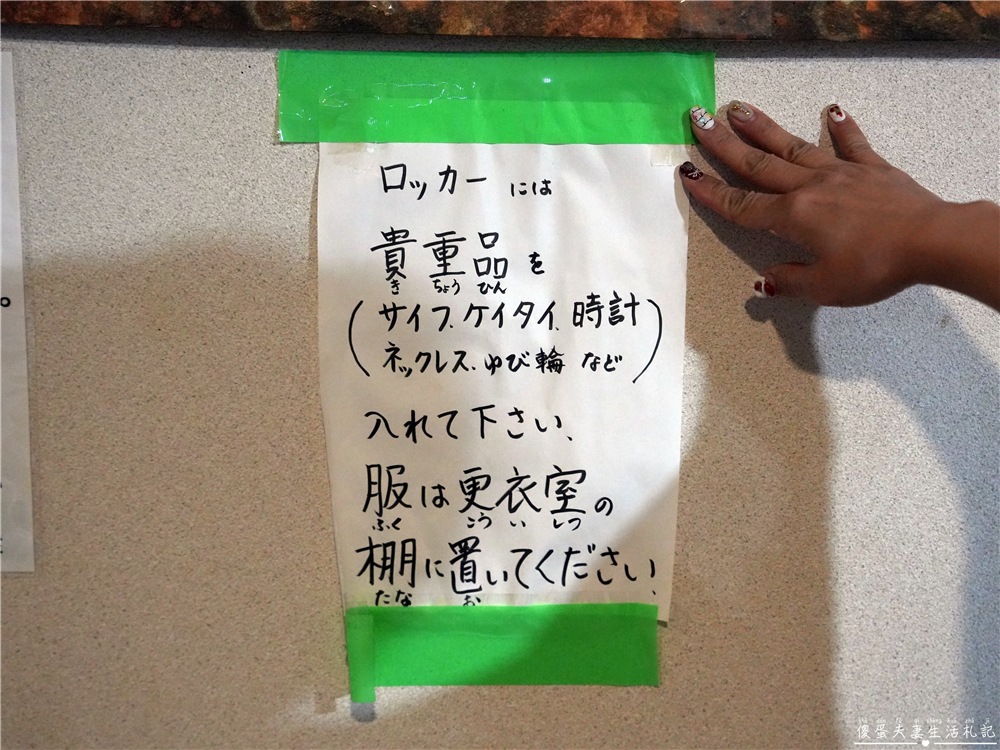 ロッカーには
貴重品を
き ちょう ひん
(サイフ、ケイタイ、時計
ネックレス、ゆび輪 など)
入れて下さい、
服は更衣室の
ふく こう い しつ
棚に置いてください、
たな お
傻蛋夫妻生活札記